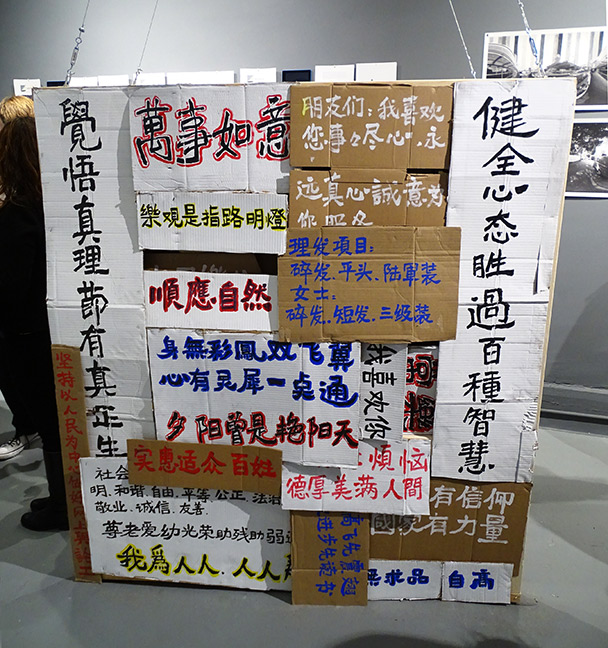 覺悟真理節有真正生
萬事如意
樂观是指路明燈
順應自然
朋友们:我喜欢
您事々尽心.永
远真心誠意为
你服务
理发項目:
碎发.平头.陆軍装
女士:
碎发.短发.三级装
健全心态胜過百種智慧
身無彩鳳双飞翼
心有灵犀一点通
夕阳曾是艳阳天
我喜欢你
坚持以人民为中心
实惠适众百姓
社会
明.和谐.自由.平等.公正.法治
敬业.诚信.友善.
尊老爱幼光荣助残助弱
我爲人人.人人
煩恼
德厚美满人間
有信仰
國家有力量
高飞先震翅
进步先读书
求品 自高